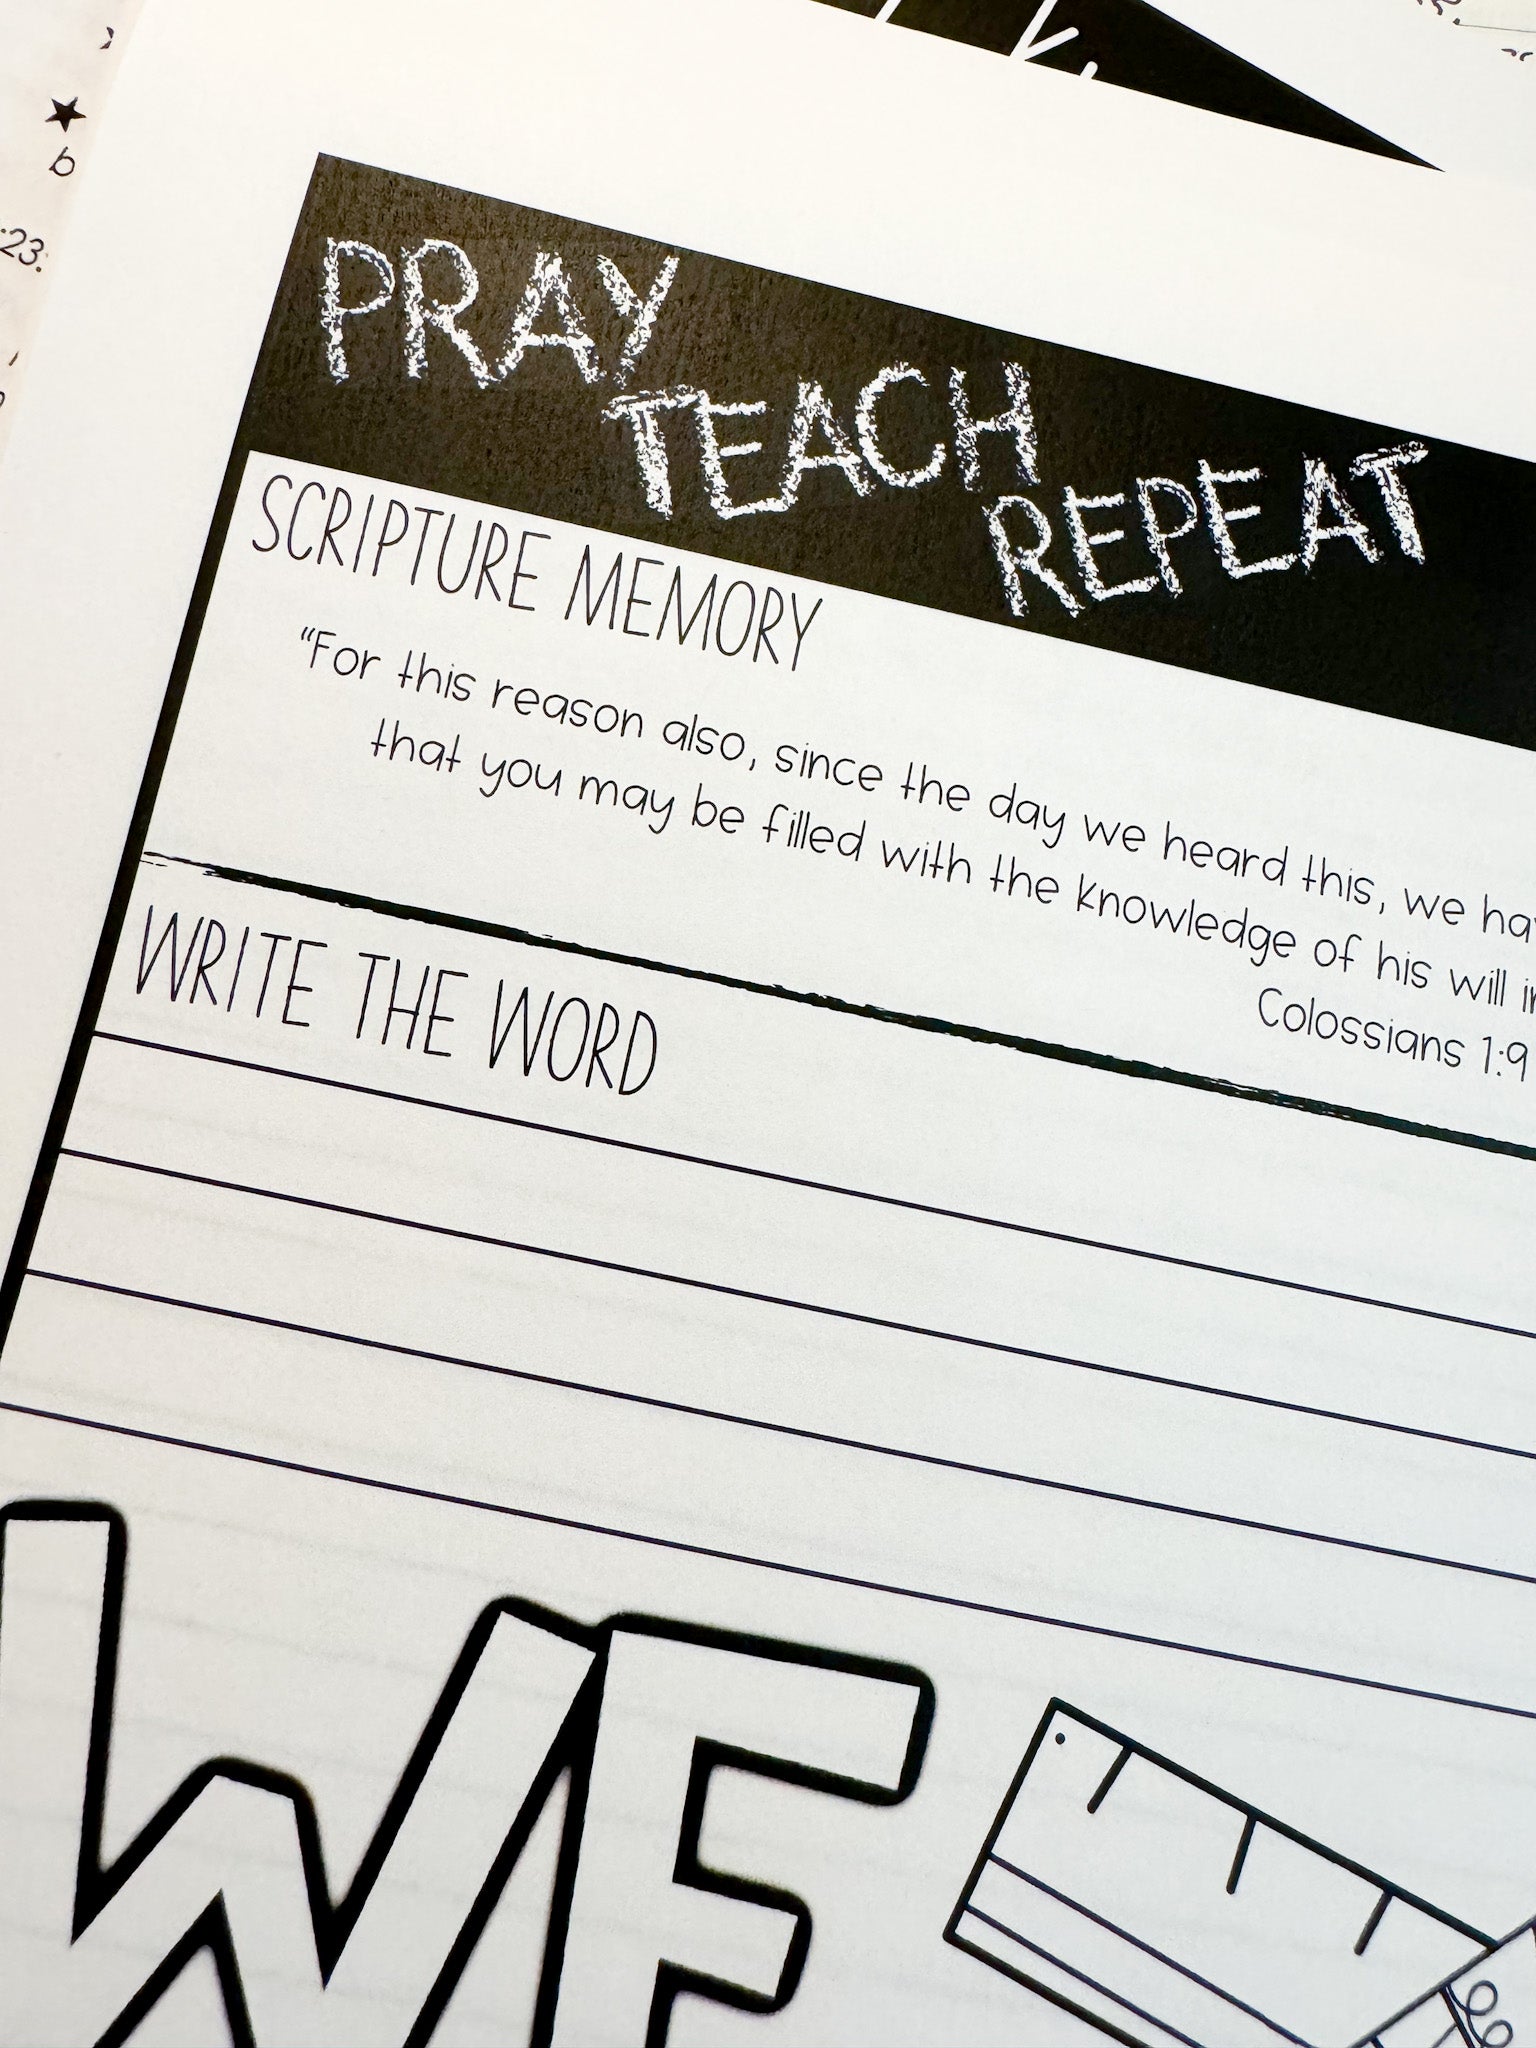 b
:23:
PRAY
TEACH
REPEAT
SCRIPTURE MEMORY
“For this reason also, since the day we heard this, we
that you may be filled with the knowledge of his will
Colossians 1:9
WRITE THE WORD
WE